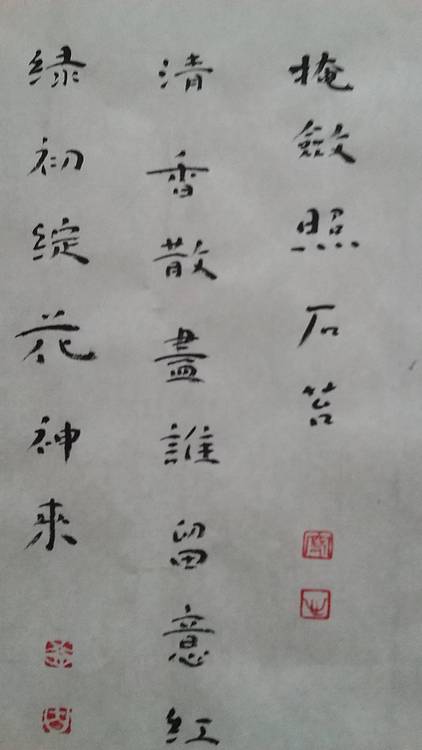 掩斂照石苔
清香散盡誰留意紅
綠初綻花神來